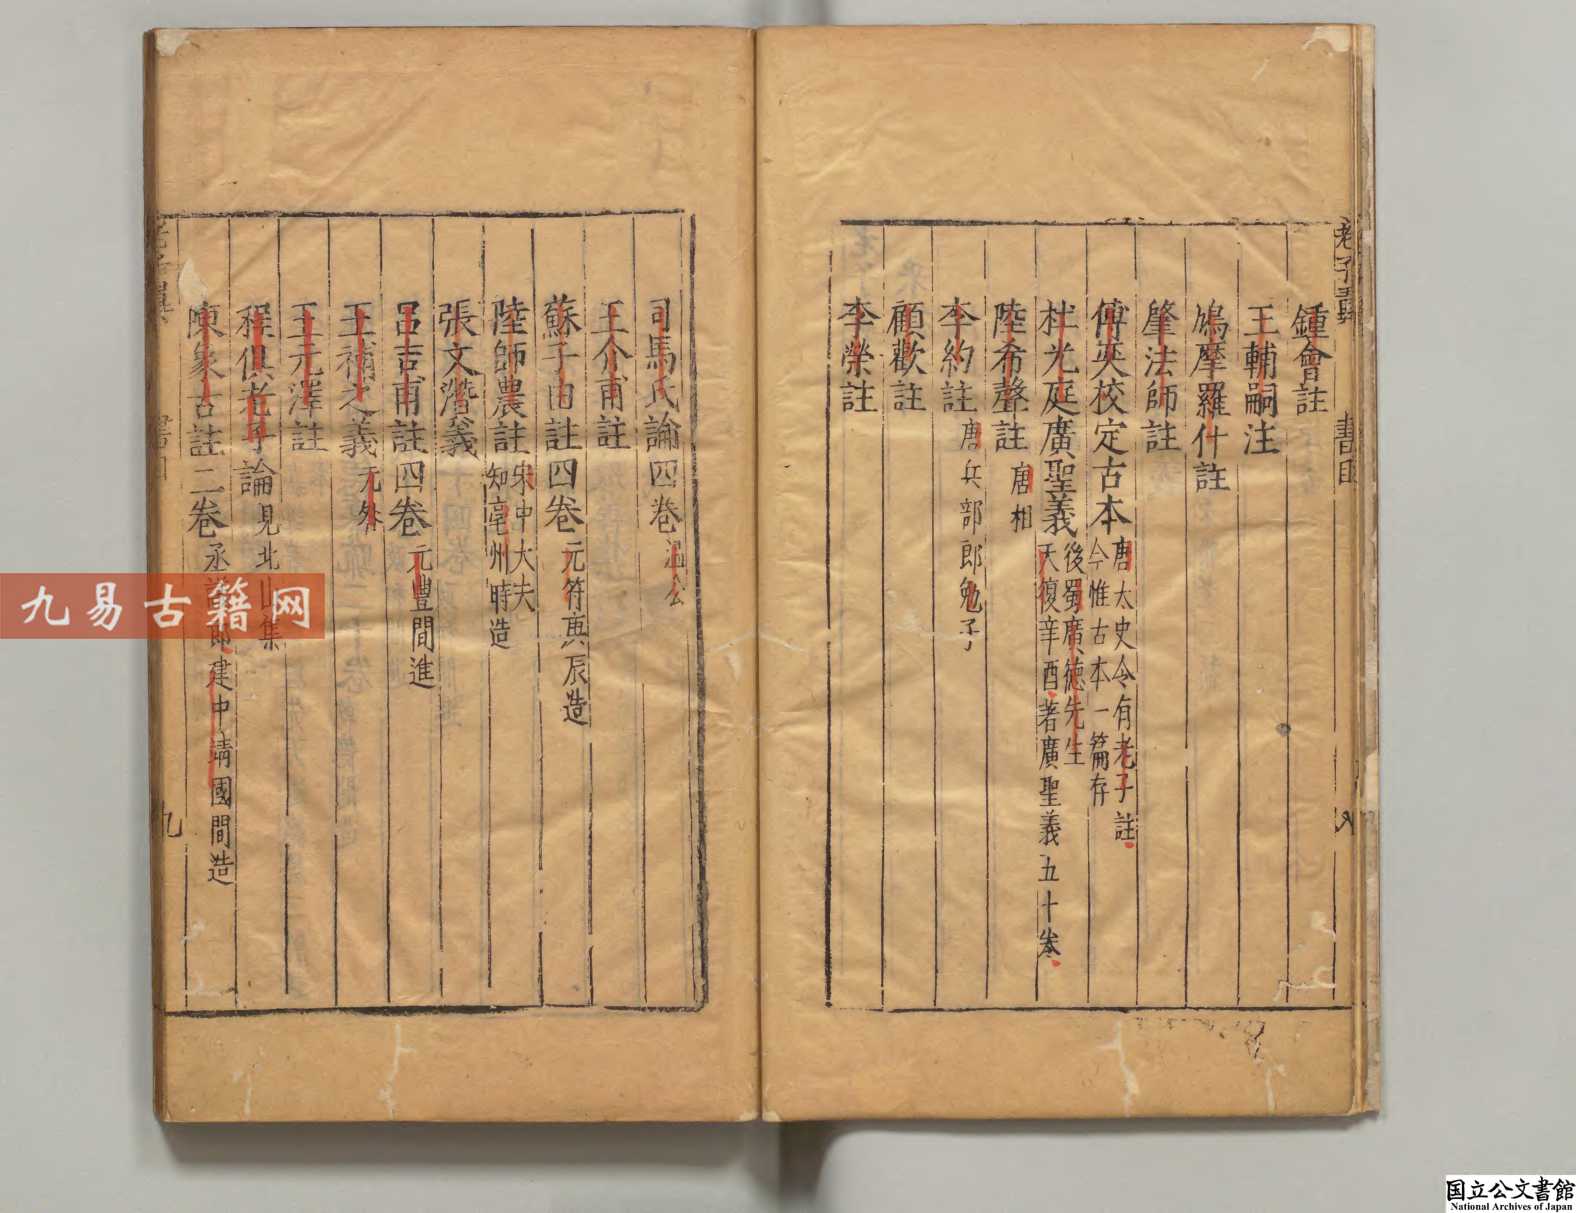 老子翼
書目
八
鍾會註
王輔嗣注
鳩摩羅什註
肇法師註
傅奕校定古本 唐太史令有老子註 今惟古本一篇存
杜光庭廣聖義 後蜀廣德先生 天復辛酉著廣聖義五十卷
陸希聲註 唐相
李約註 唐兵部郎勉子
顧歡註
李榮註
司馬氏論四卷 溫公
王介甫註
蘇子由註四卷 元符庚辰造
陸師農註 宋中大夫 知亳州時造
張文潛義
呂吉甫註四卷 元豐間進
王補之義 元外
王元澤註
程俱老子論 見北山集
陳象古註二卷 丞議郎建中靖國間造
老子翼
書目
九
九易古籍网
国立公文書館
National Archives of Japan